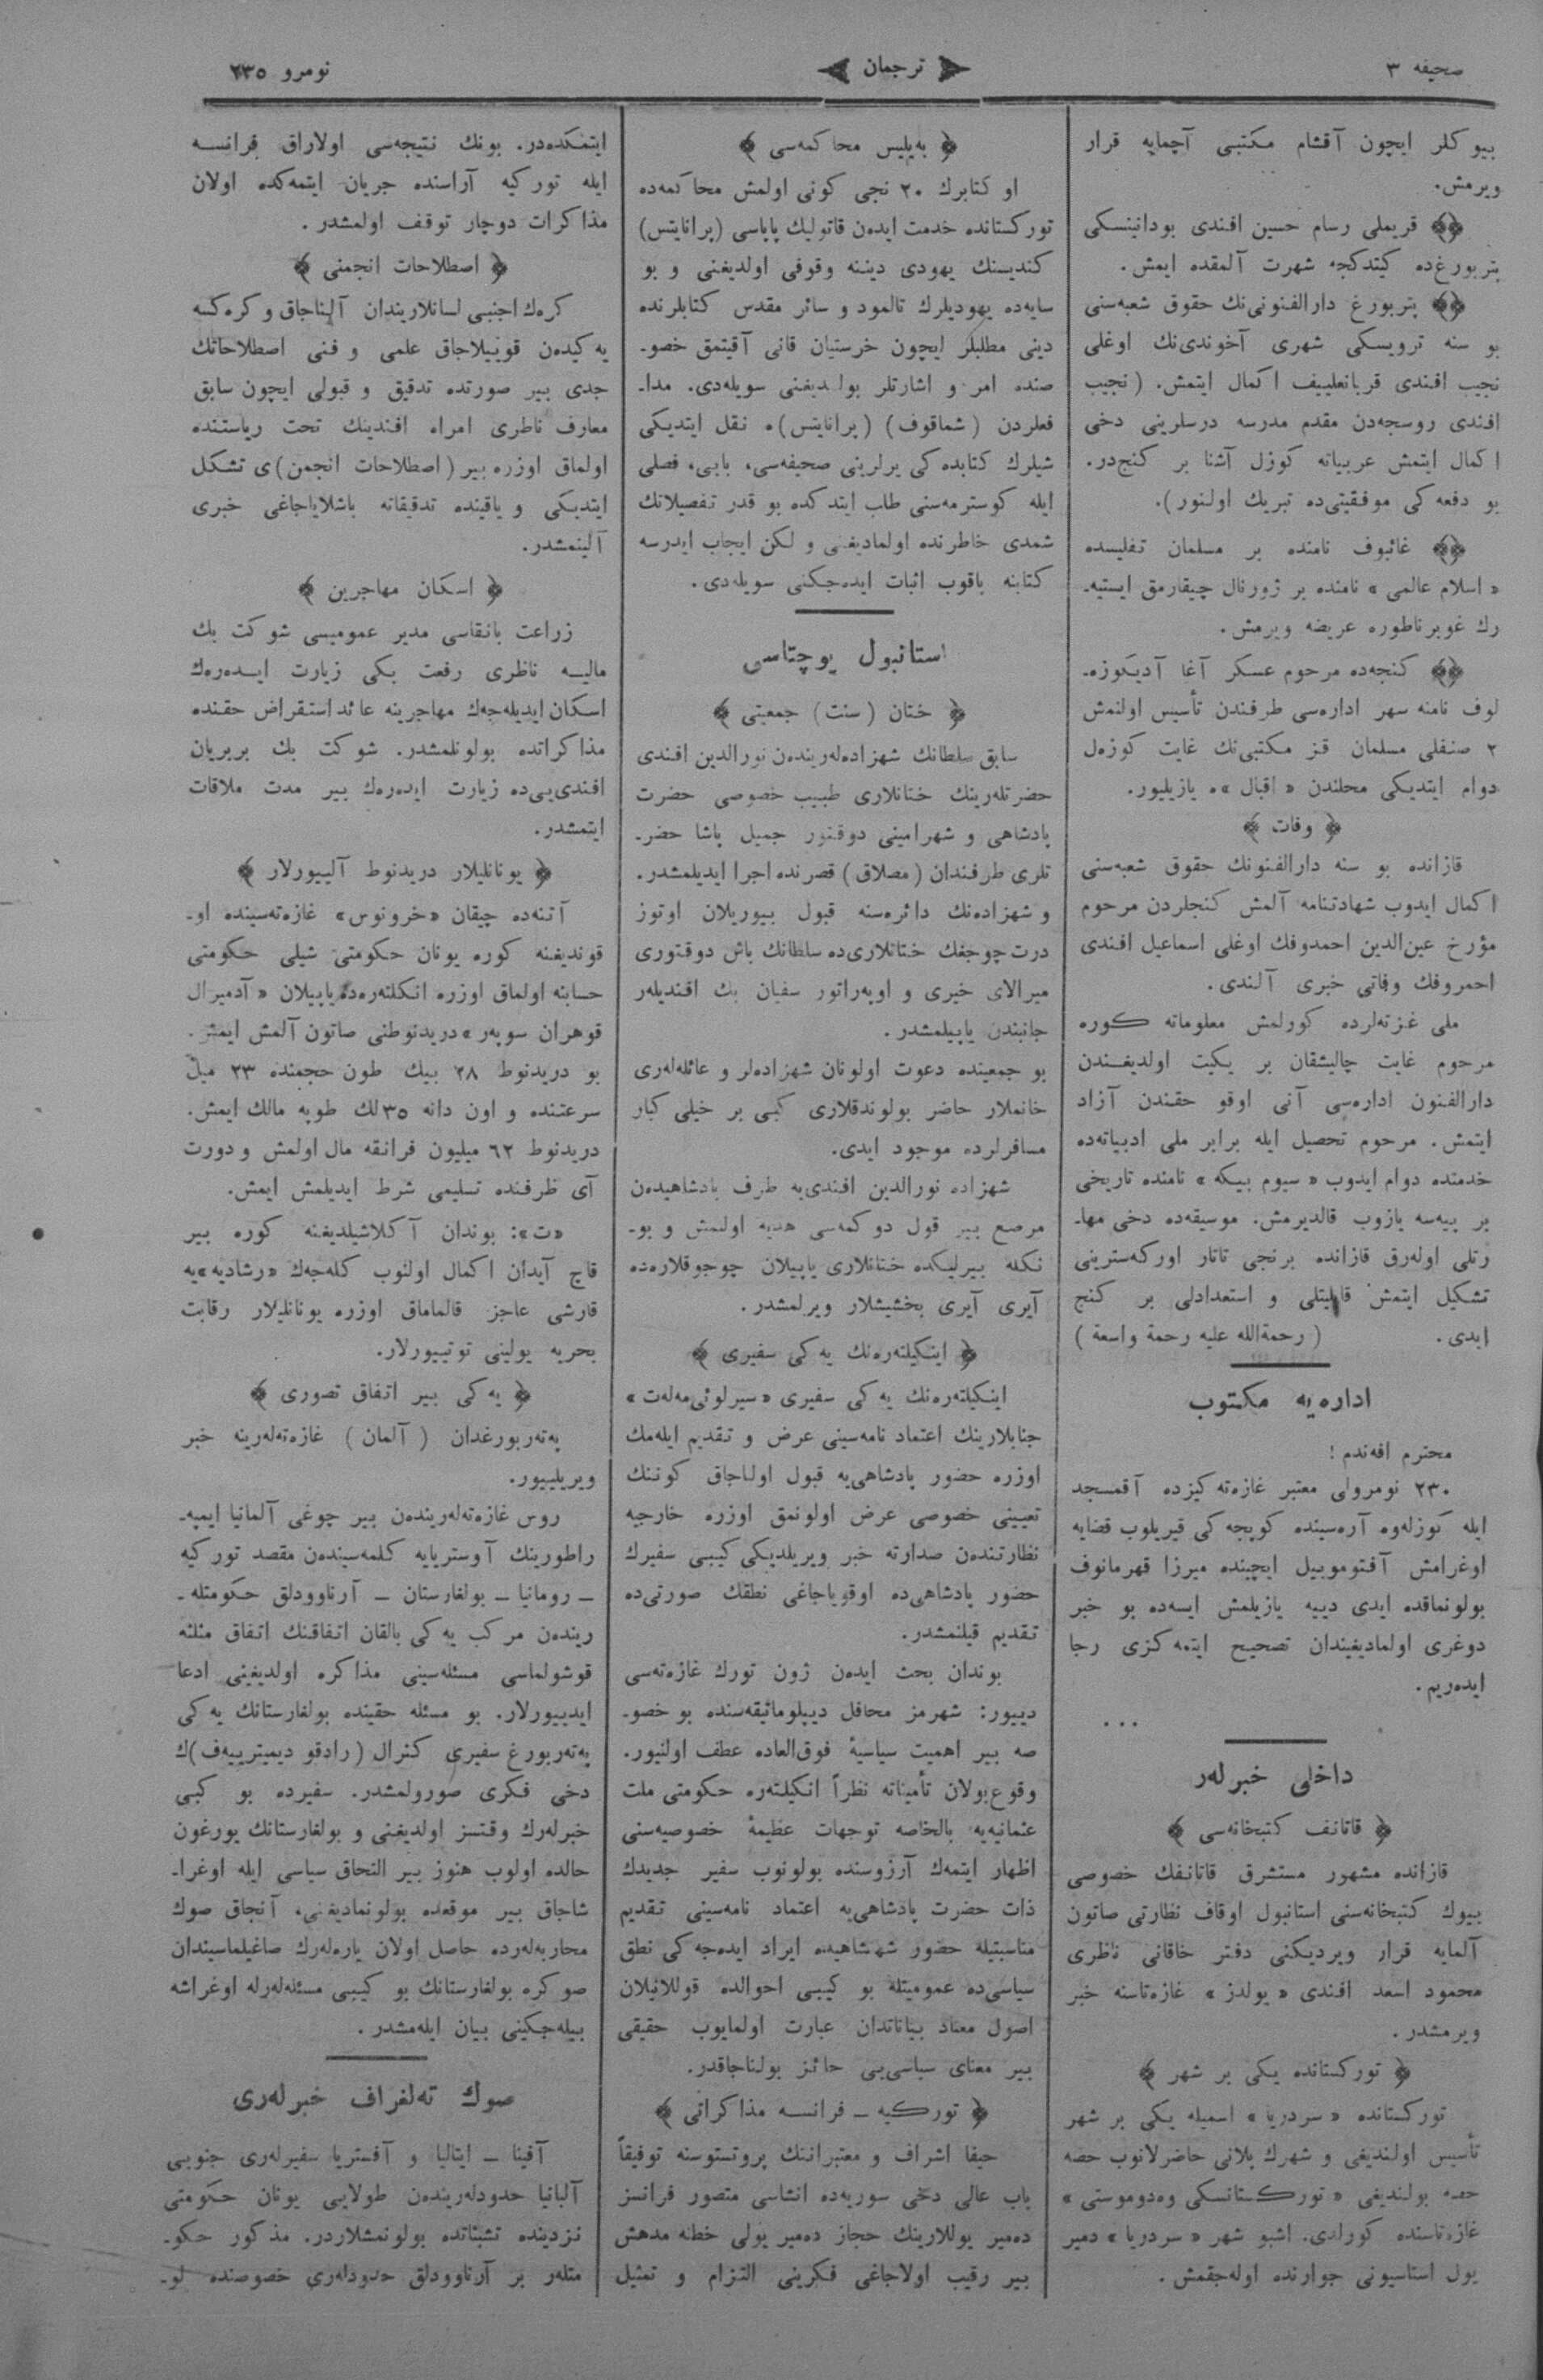 صحيفه ٣
ترجمان
نومرو ٢٣٥
بيوكلر ايچون آقشام مكتبى آچمايه قرار
ويرمش.
قريملى رسام حسين افندى بودانينسكى
پتربورغ‌ده كيتدكجه شهرت آلمقده ايمش.
پتربورغ دارالفنونى‌نك حقوق شعبه‌سنى
بو سنه ترويسكى شهرى آخوندى‌نك اوغلى
نجيب افندى قربانعلييف اكمال ايتمش. (نجيب
افندى روسجه‌دن مقدم مدرسه درسلرينى دخى
اكمال ايتمش عربياته كوزل آشنا بر كنج‌در.
بو دفعه‌كى موفقيتى‌ده تبريك اولنور).
غائبوف نامنده بر مسلمان تفليسده
« اسلام عالمى » نامنده بر ژورنال چيقارمق ايستيه‌ـ
رك غوبرناطوره عريضه ويرمش.
كنجه‌ده مرحوم عسكر آغا آديكوزه‌ـ
لوف نامنه سهر اداره‌سى طرفندن تأسيس اولنمش
٢ صنفلى مسلمان قز مكتبى‌نك غايت كوزه‌ل
دوام ايتديكى محلندن « اقبال »ه يازيليور.
﴿ وفات ﴾
قازانده بو سنه دارالفنونك حقوق شعبه‌سنى
اكمال ايدوب شهادتنامه آلمش كنجلردن مرحوم
مؤرخ عين‌الدين احمدوفك اوغلى اسماعيل افندى
احمروفك وفاتى خبرى آلندى.
ملى غزته‌لرده كورلمش معلوماته كوره
مرحوم غايت چاليشقان بر يكيت اولديغندن
دارالفنون اداره‌سى آنى اوقو حقندن آزاد
ايتمش. مرحوم تحصيل ايله برابر ملى ادبياته‌ده
خدمتده دوام ايدوب « سيوم بيكه » نامنده تاريخى
بر پيه‌سه يازوب قالديرمش. موسيقه‌ده دخى مهاـ
رتلى اوله‌رق قازانده برنجى تاتار اوركه‌سترينى
تشكيل ايتمش قابليتلى و استعدادلى بر كنج
ايدى. (رحمةالله عليه رحمة واسعة)
اداره‌يه مكتوب
محترم افه‌ندم!
٢٣٠ نومرولى معتبر غازه‌ته‌كيزده آقمسجد
ايله كوزله‌وه آره‌سينده كوپچه‌كى قيريلوب قضايه
اوغرامش آفتوموبيل ايچينده ميرزا قهرمانوف
بولونماقده ايدى دييه يازيلمش ايسه‌ده بو خبر
دوغرى اولماديغيندان تصحيح ايتمه‌كزى رجا
ايده‌ريم.
...
داخلى خبرلەر
﴿ قاتانف كتبخانه‌سى ﴾
قازانده مشهور مستشرق قاتانفك خصوصى
بيوك كتبخانه‌سنى استانبول اوقاف نظارتى صاتون
آلمايه قرار ويرديكنى دفتر خاقانى ناظرى
محمود اسعد افندى « يولدز » غازه‌تاسنه خبر
ويرمشدر.
﴿ توركستانده يكى بر شهر ﴾
توركستانده « سردريا » اسميله يكى بر شهر
تأسيس اولنديغى و شهرك پلانى حاضرلانوب حصه
حصه بولنديغى « توركستانسكى وه‌دوموستى »
غازه‌تاسنده كورلدى. اشبو شهر « سردريا » دمير
يول استاسيونى جوارنده اوله‌جقمش.
﴿ به‌يليس محاكمه‌سى ﴾
اوكتابرك ٢٠ نجى كونى اولمش محاكمه‌ده
توركستانده خدمت ايده‌ن قاتوليك پاپاسى (پرانايتس)
كنديسنك يهودى ديننه وقوفى اولديغنى و بو
سايه‌ده يهوديلرك تالمود و سائر مقدس كتابلرنده
دينى مطلبلر ايچون خرستيان قانى آقيتمق خصوـ
صنده امر و اشارتلر بولنديغنى سويله‌دى. مداـ
فعلردن (شماقوف) (پرانايتس)ه نقل ايتديكى
شيلرك كتابده‌كى يرلرينى صحيفه‌سى، بابى، فصلى
ايله كوسترمه‌سنى طلب ايتدكده بو قدر تفصيلاتك
شمدى خاطرنده اولماديغنى و لكن ايجاب ايدرسه
كتابنه باقوب اثبات ايده‌جكنى سويله‌دى.
استانبول پوچتاسى
﴿ ختان (سنت) جمعيتى ﴾
سابق سلطانك شهزاده‌لەريندەن نورالدين افندى
حضرتلەرينك ختانلارى طبيب خصوصى حضرت
پادشاهى و شهرامينى دوقتور جميل پاشا حضرـ
تلرى طرفندان (مصلاق) قصرنده اجرا ايديلمشدر.
و شهزاده‌نك دائره‌سنه قبول بيوريلان اوتوز
درت چوجغك ختانلارى‌ده سلطانك باش دوقتورى
ميرالاى خيرى و اوپەراتور سفيان بك افنديلەر
جانبندن ياپيلمشدر.
بو جمعيتده دعوت اولونان شهزاده‌لر و عائله‌لەرى
خانملار حاضر بولوندقلارى كبى بر خيلى كبار
مسافرلرده موجود ايدى.
شهزاده نورالدين افندى‌يه طرف پادشاهيدەن
مرصع بير قول دوكمه‌سى هديه اولنمش و بوـ
نكله بيرليكده ختانلارى ياپيلان چوجوقلاره‌ده
آيرى آيرى بخشيشلار ويرلمشدر.
﴿ اينكيلتەره‌نك يەكى سفيرى ﴾
اينكيلتەره‌نك يەكى سفيرى « سيرلوئى‌مەلەت »
جنابلارينك اعتماد نامه‌سينى عرض و تقديم ايلەمك
اوزره حضور پادشاهى‌يه قبول اولناجاق كوننك
تعيينى خصوصى عرض اولونمق اوزره خارجيه
نظارتندەن صدارته خبر ويريلديكى كيبى سفيرك
حضور پادشاهى‌ده اوقوياجاغى نطقك صورتى‌ده
تقديم قيلنمشدر.
بوندان بحث ايدەن ژون تورك غازەتەسى
دييور: شهرمز محافل ديپلوماتيقه‌سنده بو خصوـ
صه بير اهميت سياسيهٔ فوق‌العاده عطف اولنيور.
وقوع‌بولان تأميناته نظراً انكيلتەره حكومتى ملت
عثمانيه‌يه بالخاصه توجهات عظيمهٔ خصوصيه‌سنى
اظهار ايتمەك آرزوسنده بولونوب سفير جديدك
ذات حضرت پادشاهى‌يه اعتماد نامه‌سينى تقديم
مناسبتيله حضور شهنشاهيده ايراد ايدەجەكى نطق
سياسى‌ده عموميتله بو كيبى احوالده قوللانيلان
اصول معتاد بياناتدان عبارت اولمايوب حقيقى
بير معناى سياسى‌يى حائز بولناجاقدر.
﴿ توركيه ــ فرانسه مذاكراتى ﴾
حيفا اشراف و معتبراننك پروتستوسنه توفيقاً
باب عالى دخى سوريه‌ده انشاسى متصور فرانسز
دەمير يوللارينك حجاز دەمير يولى خطنه مدهش
بير رقيب اولاجاغى فكرينى التزام و تمثيل
ايتمكدەدر. بونك نتيجه‌سى اولاراق فرانسه
ايله توركيه آراسنده جريان ايتمه‌كده اولان
مذاكرات دوچار توقف اولمشدر.
﴿ اصطلاحات انجمنى ﴾
كرەك اجنبى لسانلاريندان آلناجاق و كرەكسه
يەكيدەن قوييلاجاق علمى و فنى اصطلاحاتك
جدى بير صورتده تدقيق و قبولى ايچون سابق
معارف ناظرى امراﻪ افندينك تحت رياستنده
اولماق اوزره بير (اصطلاحات انجمن)ى تشكل
ايتديكى و ياقينده تدقيقاته باشلاياجاغى خبرى
آلينمشدر.
﴿ اسكان مهاجرين ﴾
زراعت بانقاسى مدير عموميسى شوكت بك
ماليه ناظرى رفعت بكى زيارت ايدەرەك
اسكان ايديلەجەك مهاجرينه عائد استقراض حقنده
مذاكراتده بولونلمشدر. شوكت بك بربريان
افندى‌يى‌ده زيارت ايدەرەك بير مدت ملاقات
ايتمشدر.
﴿ يونانليلار دريدنوط آلييورلار ﴾
آتنه‌ده چيقان «خرونوس» غازەتەسيندە اوـ
قونديغنه كوره يونان حكومتى شيلى حكومتى
حسابنه اولماق اوزره انكلتەرەده ياپيلان « آدميرال
قوهران سوپەر » دريدنوطنى صاتون آلمش ايمش.
بو دريدنوط ٢٨ بيك طون حجمنده ٢٣ ميل
سرعتنده و اون دانه ٣٥لك طوپه مالك ايمش.
دريدنوط ٦٢ ميليون فرانقه مال اولمش و دورت
آى ظرفنده تسليمى شرط ايديلمش ايمش.
«ت»: بوندان آكلاشيلديغنه كوره بير
قاچ آيدان اكمال اولنوب كلەجەك «رشاديه»يه
قارشى عاجز قالماماق اوزره يونانليلار رقابت
بحريه يولينى توتييورلار.
﴿ يەكى بير اتفاق تصورى ﴾
پەتەربورغدان (آلمان) غازەتەلەرينه خبر
ويريلييور.
روس غازەتەلەريندەن بير چوغى آلمانيا ايمپەـ
راطورينك آوسترييايه كلمه‌سيندەن مقصد توركيه
ــ رومانيا ــ بولغارستان ــ آرناوودلق حكومتلەـ
ريندەن مركب يەكى بالقان اتفاقنك اتفاق مثلثه
قوشولماسى مسئله‌سينى مذاكره اولديغينى ادعا
ايدييورلار. بو مسئله حقينده بولغارستانك يەكى
پەتەربورغ سفيرى كنرال (رادقو ديميترييەف)ك
دخى فكرى صورولمشدر. سفيرده بو كبى
خبرلەرك وقتسز اولديغنى و بولغارستانك يورغون
حالده اولوب هنوز بير التحاق سياسى ايله اوغراـ
شاجاق بير موقعده بولونماديغنى، آنجاق صوك
محاربه‌لەرده حاصل اولان يارەلەرك صاغيلماسيندان
صوكره بولغارستانك بو كيبى مسئلەلەرله اوغراشه
بيلەجكينى بيان ايلەمشدر.
صوك تەلغراف خبرلەرى
آفينا ــ ايتاليا و آفستريا سفيرلەرى جنوبى
آلبانيا حدودلەريندەن طولايى يونان حكومتى
نزدينده تشبثاتده بولونمشلاردر. مذكور حكوـ
متلەر بر آرناوودلق حدودلەرى خصوصنده لوـ